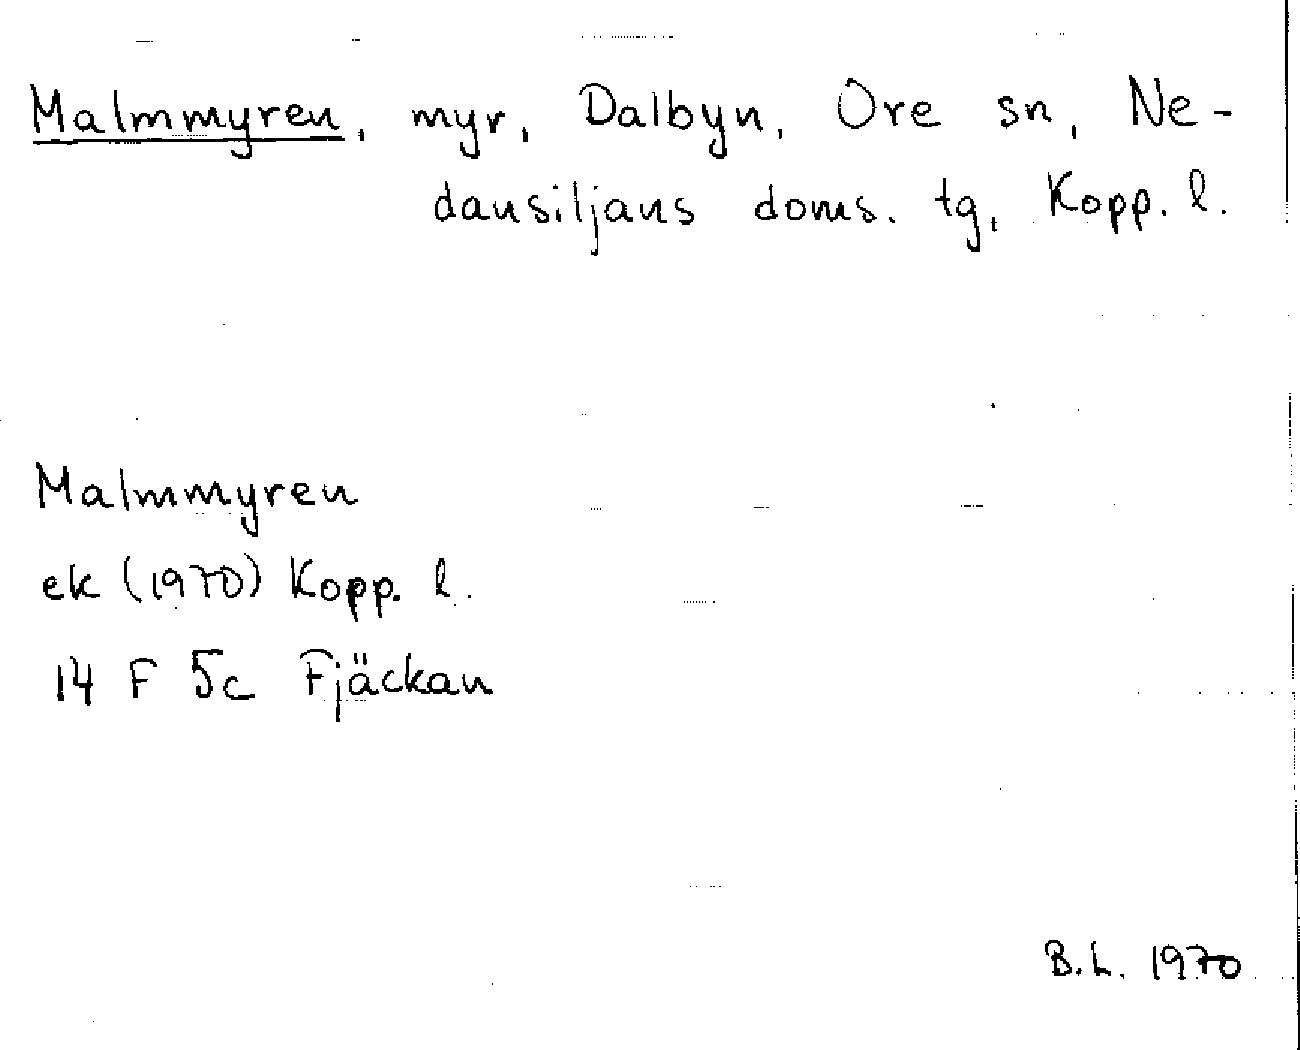 Malmmyren, myr, Dalbyn, Ore sn, Ne-
dansiljans doms. tg, Kopp. l.
Malmmyren
ek (1970) Kopp. l.
14 F 5c Fjäckan
B.L. 1970